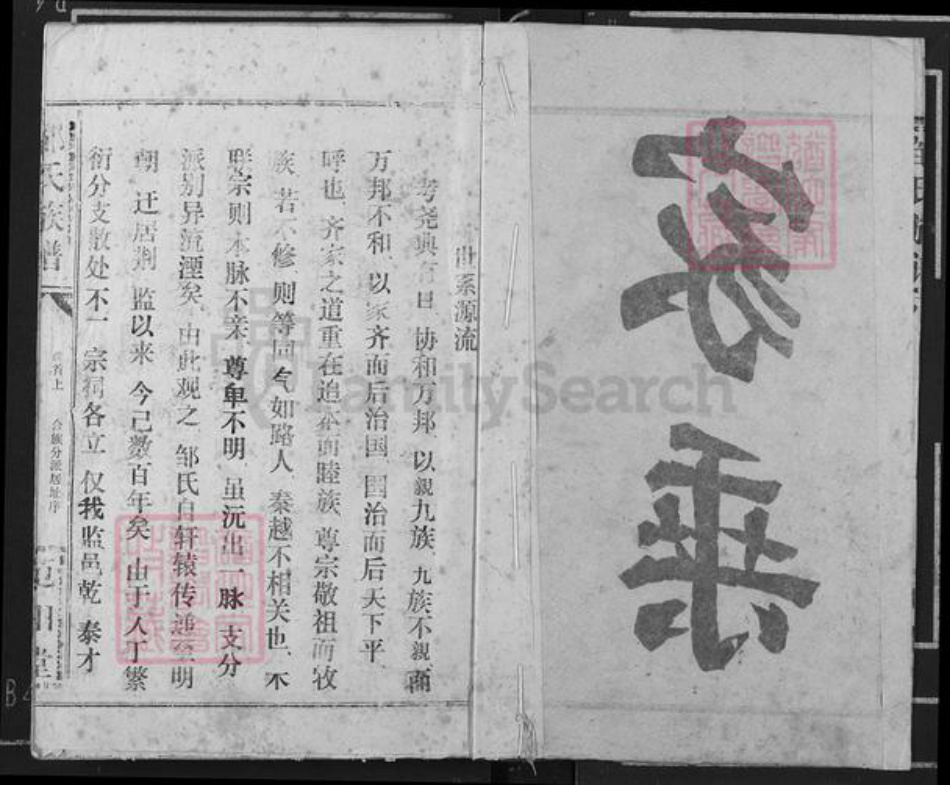 家乘
世系源流
考尧典有曰 协和万邦 以親九族 九族不親 而
万邦不和 以家齐而后治国 国治而后天下平
呼也 齐家之道重在追本而睦族 尊宗敬祖而收
族 若不修 则等同气如路人 秦越不相关也 不
联宗则本脉不亲 尊卑不明 虽沅出一脉 支分
派别异流湮矣 由此观之 邹氏自轩辕传递至明
朝 迁居荆 监以来 今己数百年矣 由于人丁繁
衍分支散处不一 宗祠各立 仅我监邑乾 泰才
氏族谱
卷首上 合族分派居址序
FamilySearch